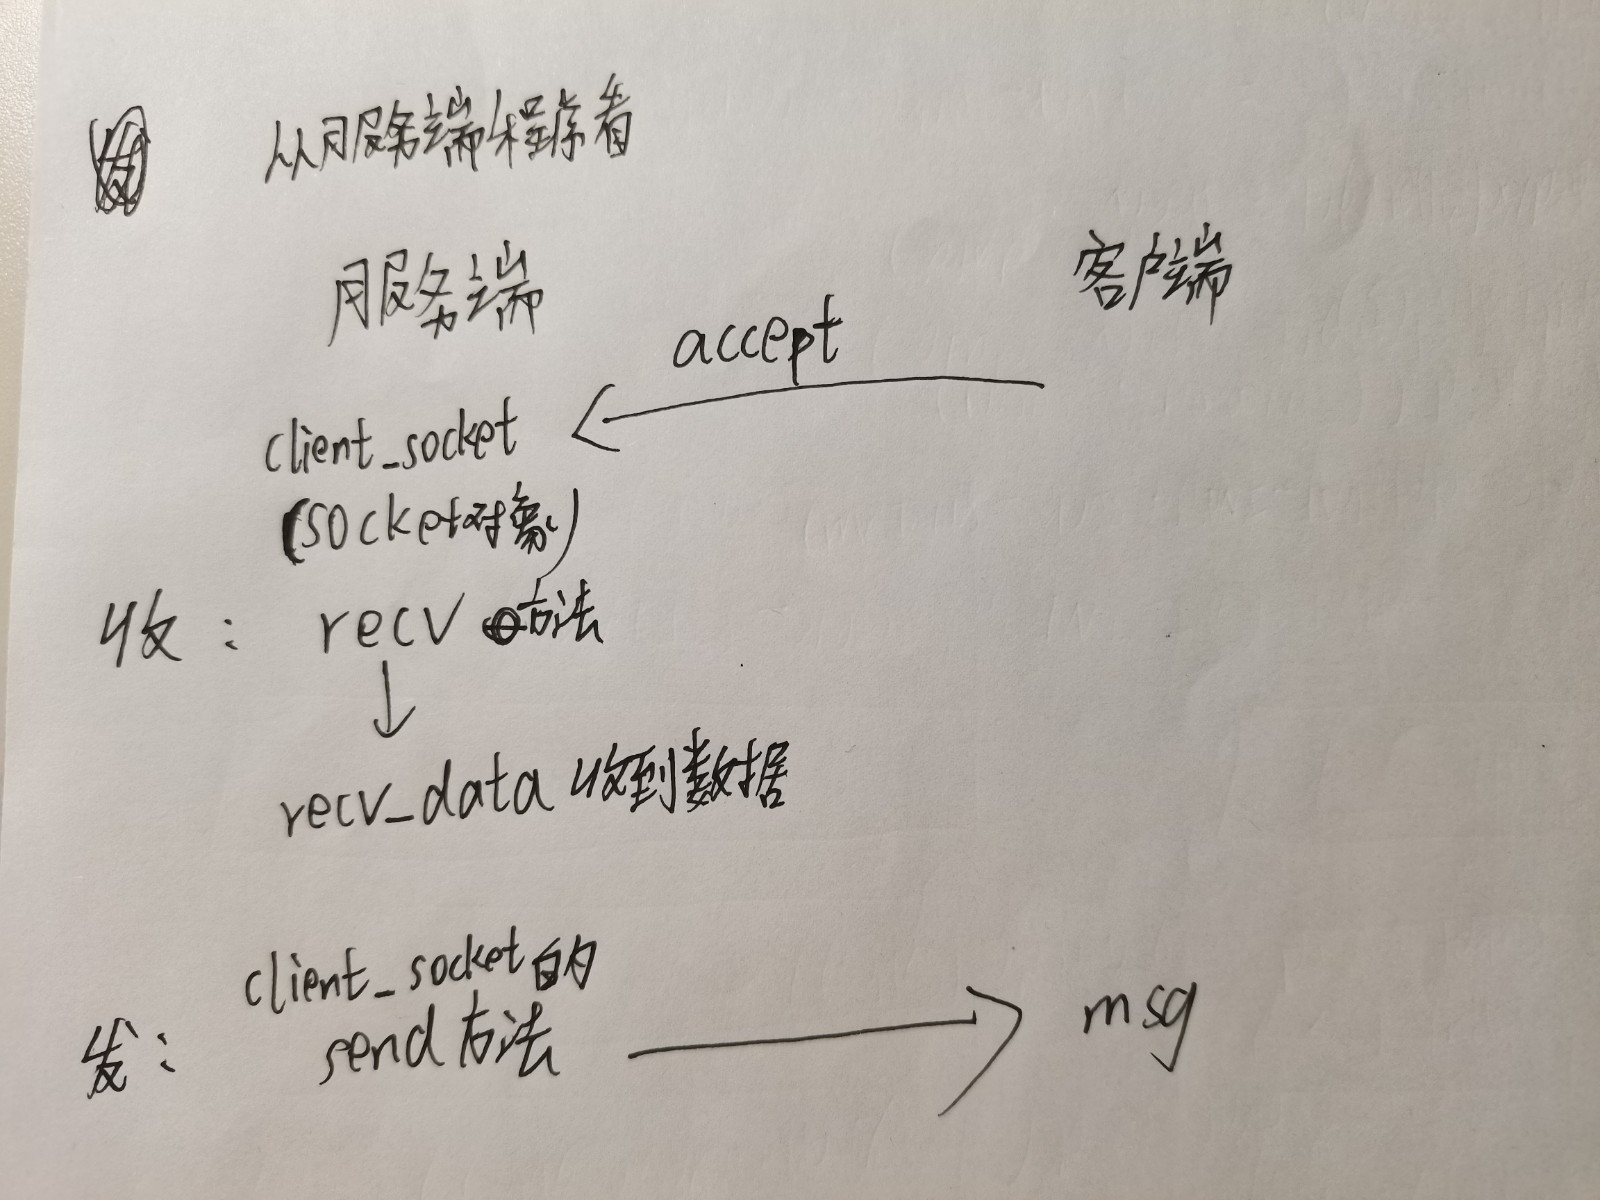 从服务端程序看
服务端
客户端
accept
client_socket
(socket对象)
收： recv 方法
recv_data 收到数据
client_socket 的
发： send 方法
msg